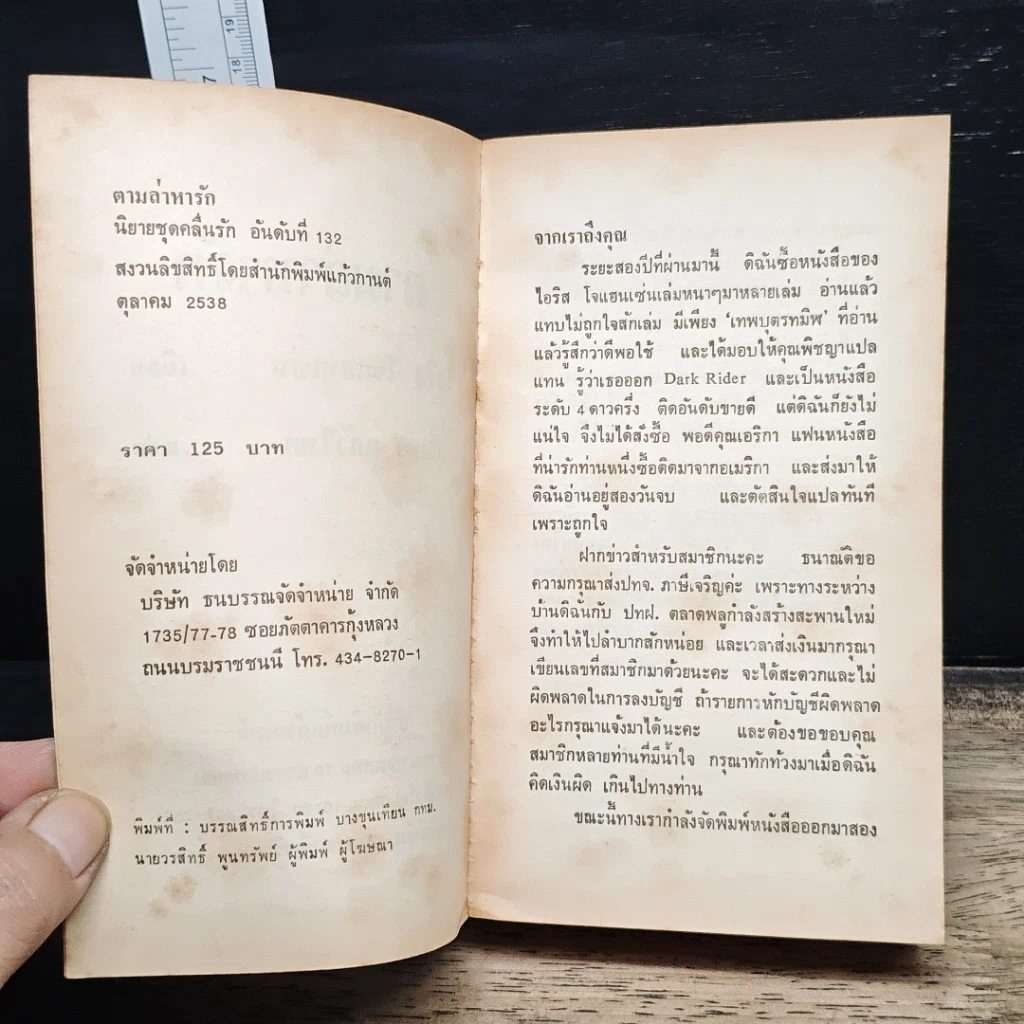 19
18
7
ตามล่าหารัก
นิยายชุดคลื่นรัก อันดับที่ 132
สงวนลิขสิทธิ์โดยสำนักพิมพ์แก้วกานต์
ตุลาคม 2538
ราคา 125 บาท
จัดจำหน่ายโดย
บริษัท ธนบรรณจัดจำหน่าย จำกัด
1735/77-78 ซอยภัตตาคารกุ้งหลวง
ถนนบรมราชชนนี โทร. 434-8270-1
พิมพ์ที่ : บรรณสิทธิ์การพิมพ์ บางขุนเทียน กทม.
นายวรสิทธิ์ พูนทรัพย์ ผู้พิมพ์ ผู้โฆษณา
จากเราถึงคุณ
ระยะสองปีที่ผ่านมานี้ ดิฉันซื้อหนังสือของ
ไอริส โจแฮนเซ่นเล่มหนาๆมาหลายเล่ม อ่านแล้ว
แทบไม่ถูกใจสักเล่ม มีเพียง ‘เทพบุตรทมิฬ’ ที่อ่าน
แล้วรู้สึกว่าดีพอใช้ และได้มอบให้คุณพิชญาแปล
แทน รู้ว่าเธอออก Dark Rider และเป็นหนังสือ
ระดับ 4 ดาวครึ่ง ติดอันดับขายดี แต่ดิฉันก็ยังไม่
แน่ใจ จึงไม่ได้สั่งซื้อ พอดีคุณเอริกา แฟนหนังสือ
ที่น่ารักท่านหนึ่งซื้อติดมาจากอเมริกา และส่งมาให้
ดิฉันอ่านอยู่สองวันจบ และตัดสินใจแปลทันที
เพราะถูกใจ
ฝากข่าวสำหรับสมาชิกนะคะ ธนาณัติขอ
ความกรุณาส่งปทจ. ภาษีเจริญค่ะ เพราะทางระหว่าง
บ้านดิฉันกับ ปทฝ. ตลาดพลูกำลังสร้างสะพานใหม่
จึงทำให้ไปลำบากสักหน่อย และเวลาส่งเงินมากรุณา
เขียนเลขที่สมาชิกมาด้วยนะคะ จะได้สะดวกและไม่
ผิดพลาดในการลงบัญชี ถ้ารายการหักบัญชีผิดพลาด
อะไรกรุณาแจ้งมาได้นะคะ และต้องขอขอบคุณ
สมาชิกหลายท่านที่มีน้ำใจ กรุณาทักท้วงมาเมื่อดิฉัน
คิดเงินผิด เกินไปทางท่าน
ขณะนี้ทางเรากำลังจัดพิมพ์หนังสือออกมาสอง